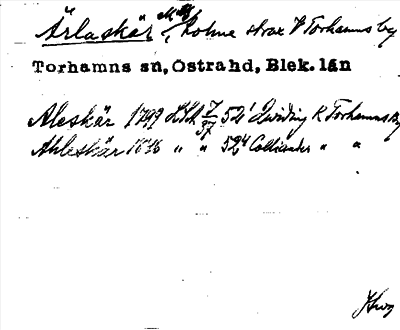 Ärlaskär, Holme strax V Torhamns by
Torhamns sn, Östra hd, Blek. län
Aleskär 1799 LSA 7/37 52' Quiding K Torhamns by
Ahleskär 1846 " " 52 4 Colliander " "